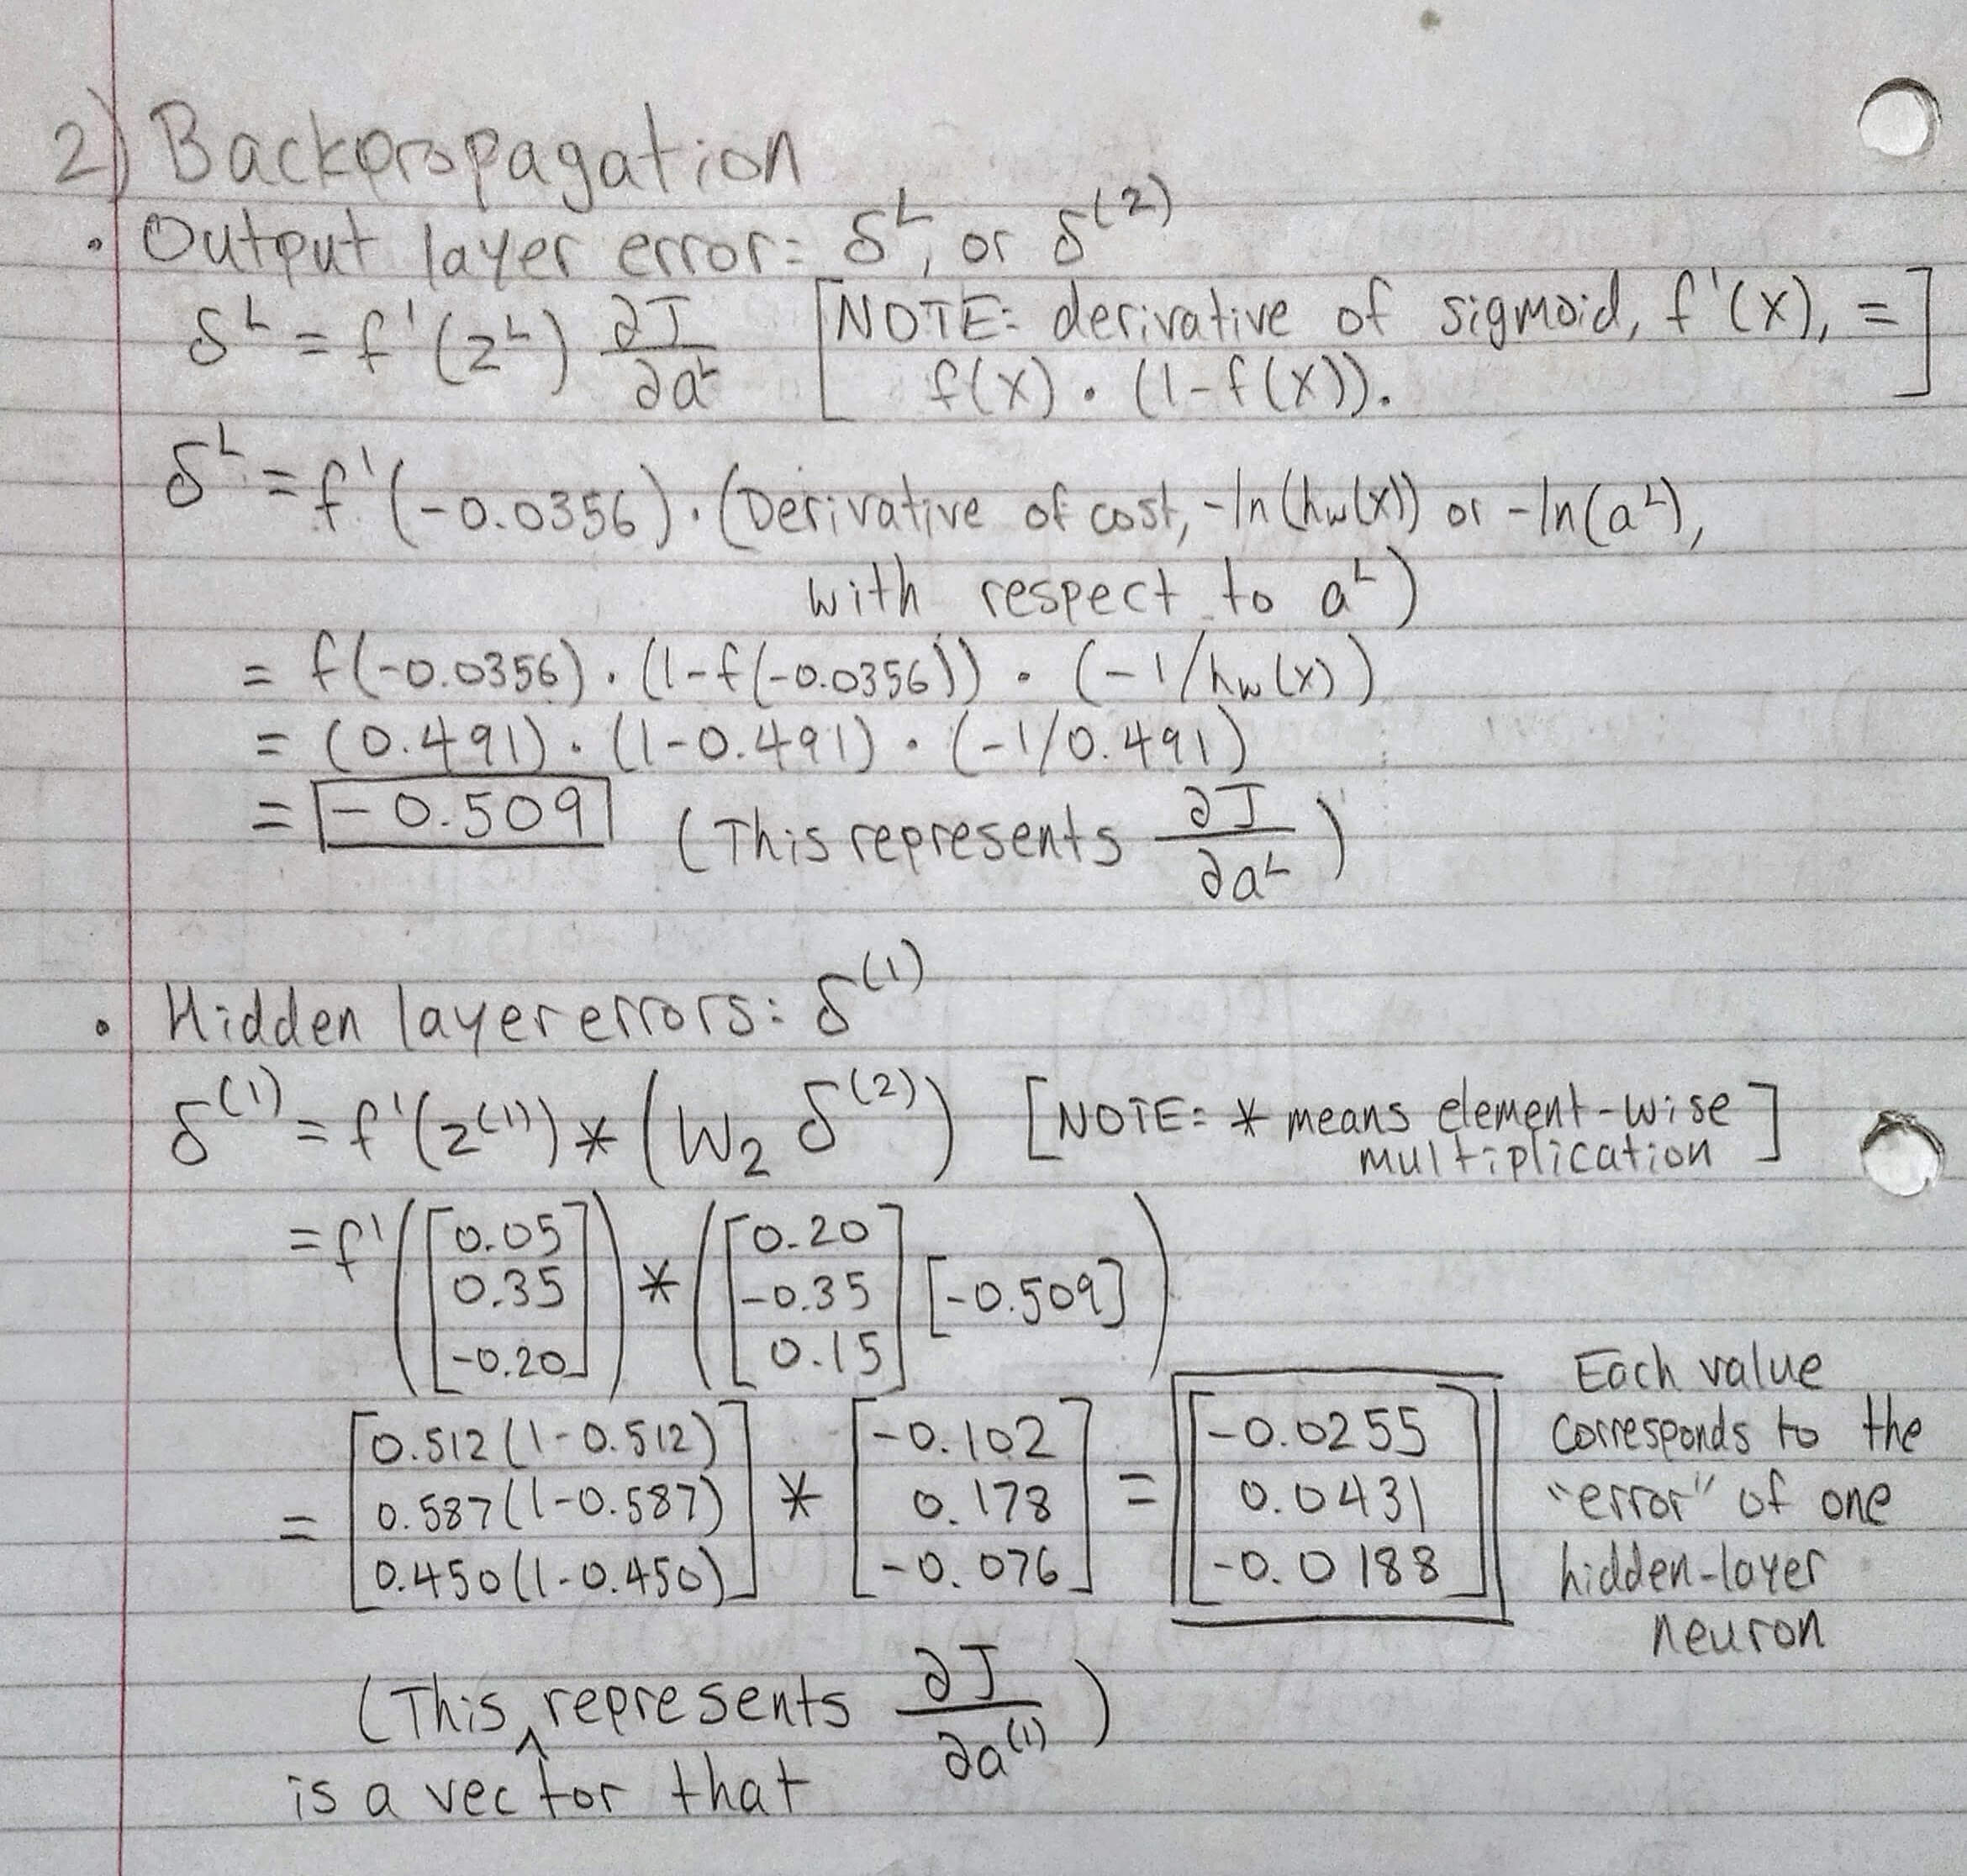 2) Backpropagation
• Output layer error: δᴸ, or δ⁽²⁾
δᴸ = f'(zᴸ) ∂J/∂aᴸ [NOTE: derivative of sigmoid, f'(x), =
f(x) · (1-f(x)). ]
δᴸ = f'(-0.0356) · (Derivative of cost, -ln(h_w(x)) or -ln(aᴸ),
with respect to aᴸ)
= f(-0.0356) · (1-f(-0.0356)) · (-1/h_w(x))
= (0.491) · (1-0.491) · (-1/0.491)
= -0.509 (This represents ∂J/∂aᴸ)
• Hidden layer errors: δ⁽¹⁾
δ⁽¹⁾ = f'(z⁽¹⁾) * (W₂ δ⁽²⁾) [NOTE: * means element-wise
multiplication ]
= f'([0.05 0.35 -0.20]) * ([0.20 -0.35 0.15] [-0.509])
= [0.512(1-0.512) 0.587(1-0.587) 0.450(1-0.450)] * [-0.102 0.178 -0.076] = [-0.0255 0.0431 -0.0188]
Each value
corresponds to the
"error" of one
hidden-layer
neuron
(This ^ represents ∂J/∂a⁽¹⁾)
is a vector that